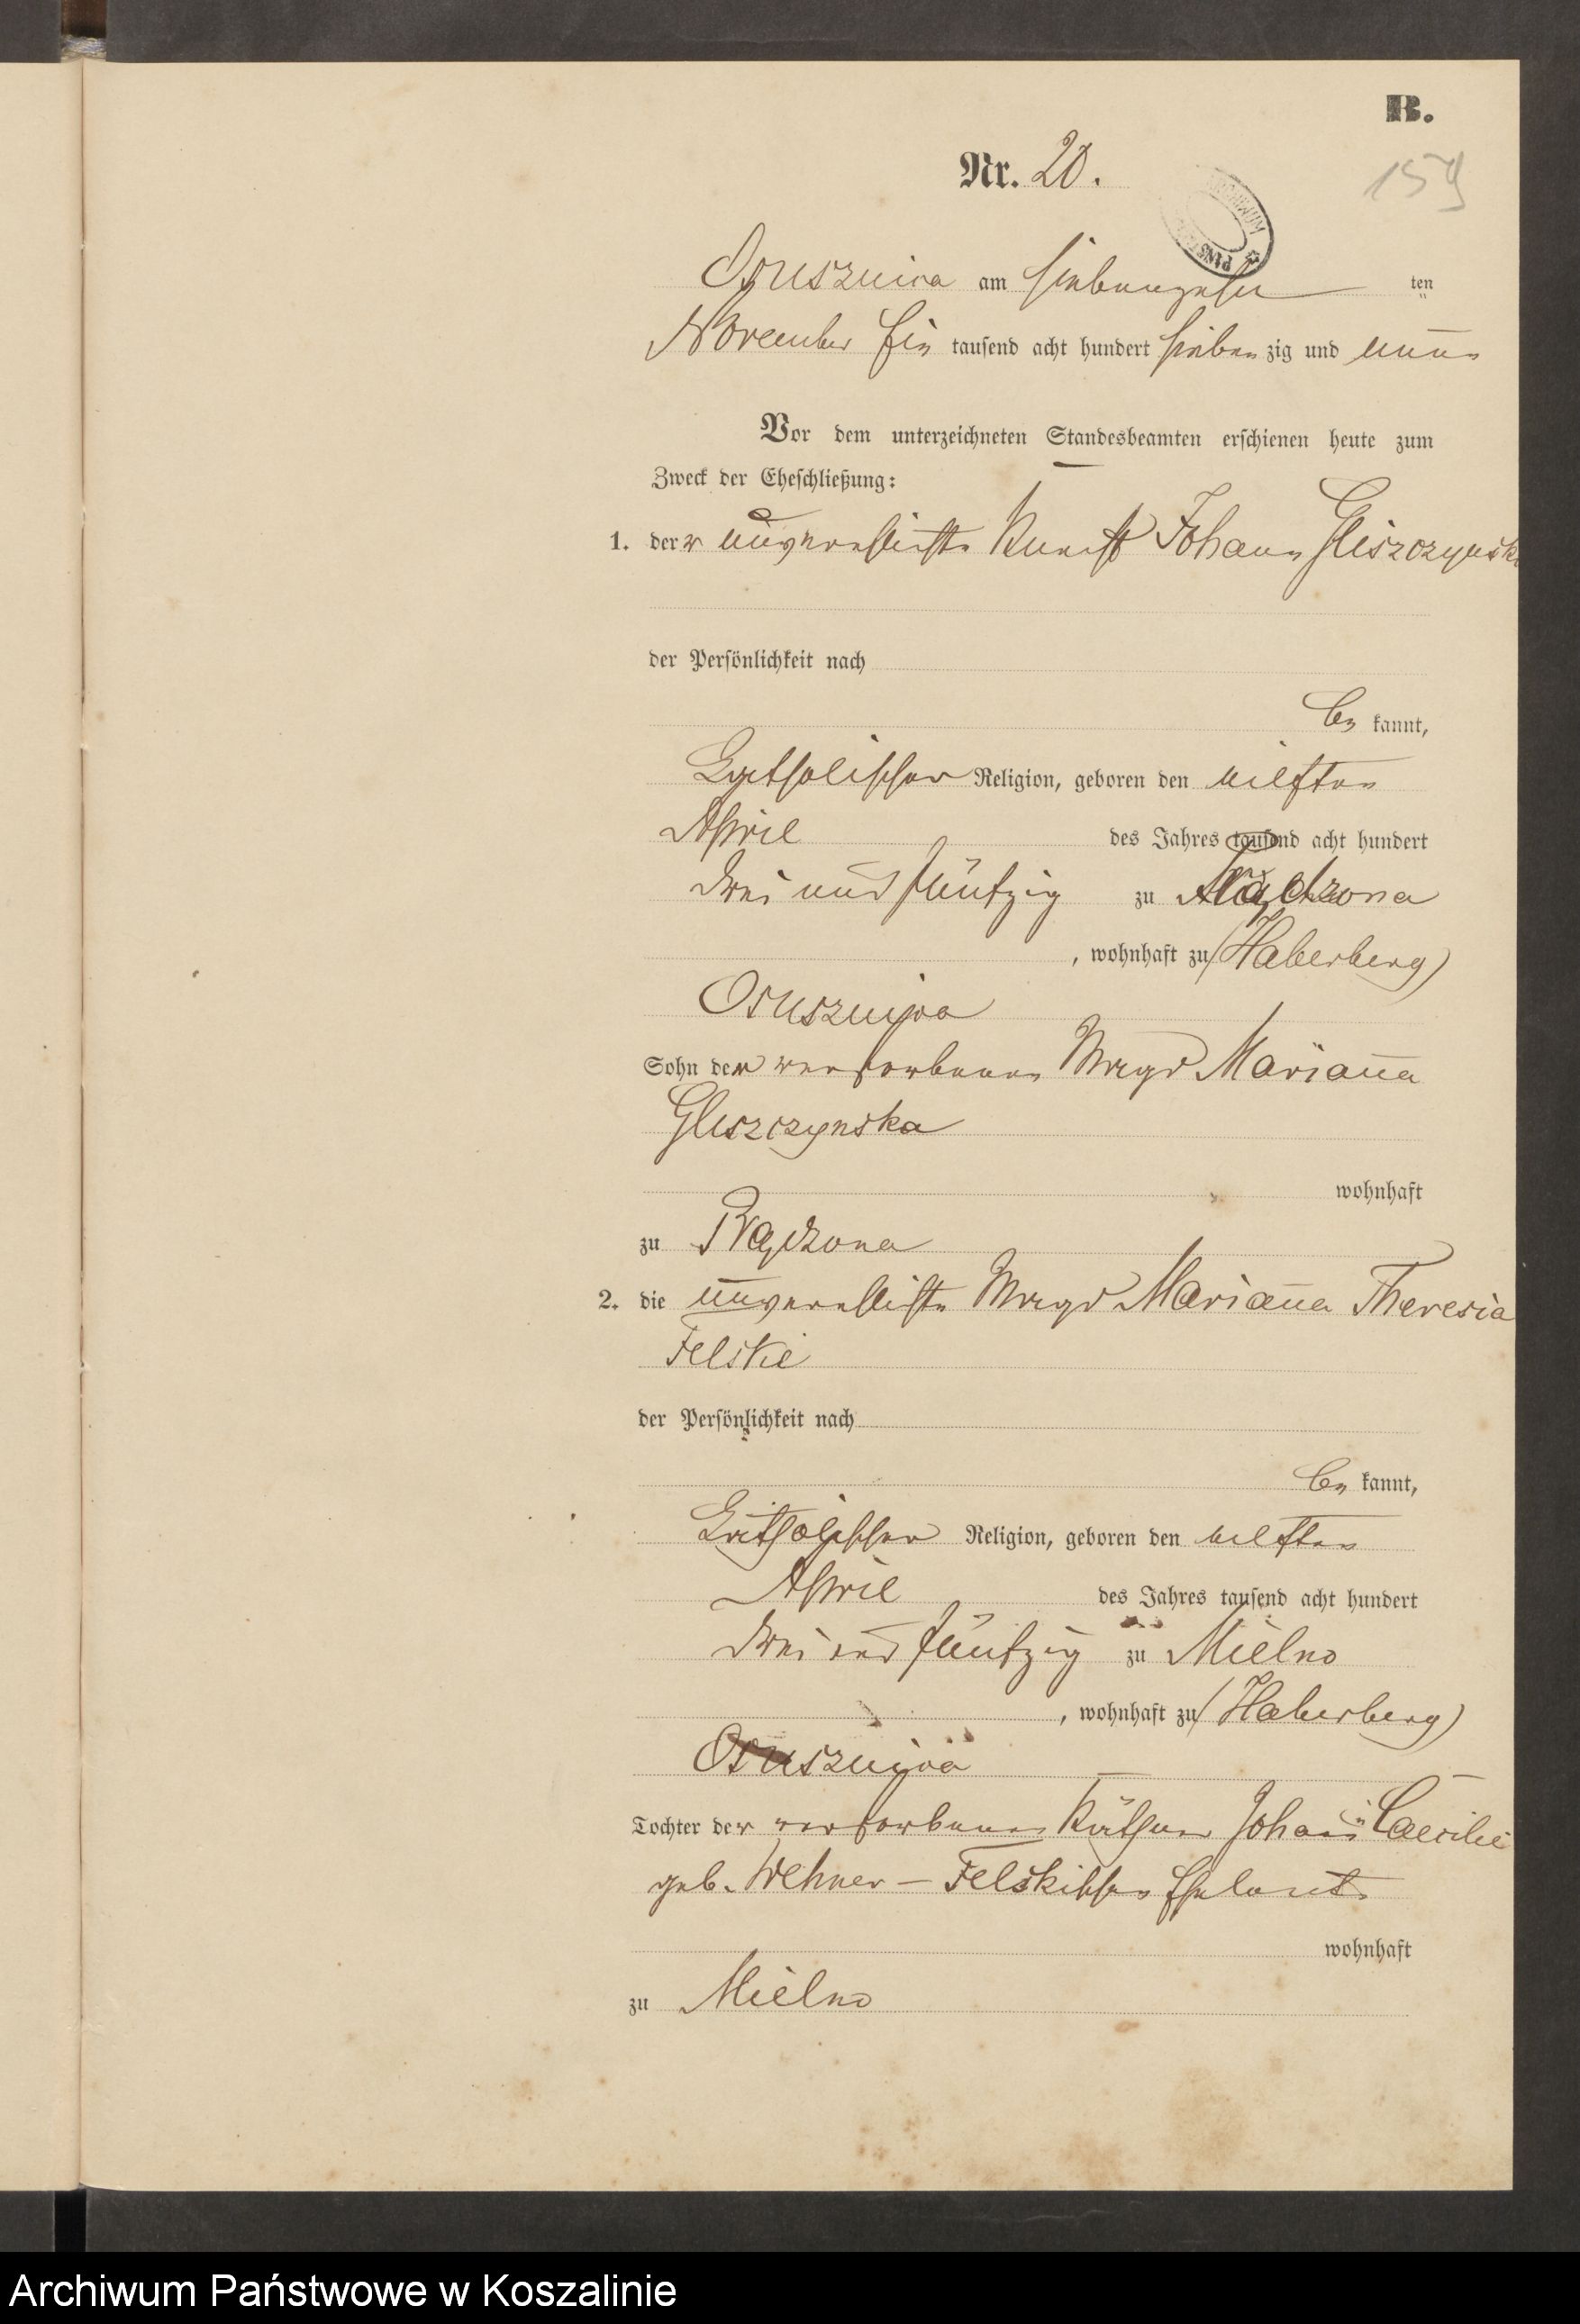 B.
Nr. 20.
159
Ossusznica am siebenzehn ten
November Ein tausend acht hundert sieben zig und neun
Vor dem unterzeichneten Standesbeamten erschienen heute zum
Zweck der Eheschließung:
1. der unverehelichte Knecht Johann Gliszczynski
der Persönlichkeit nach
be kannt,
katholischer Religion, geboren den elften
April des Jahres tausend acht hundert
drei und fünfzig zu
, wohnhaft zu (Haberberg)
Osusznica
Sohn der verstorbenen Magd Marianna
Gliszczynska
wohnhaft
zu Prądzona
2. die unverehelichte Magd Marianna Theresia
Felski
der Persönlichkeit nach
be kannt,
katholischer Religion, geboren den elften
April des Jahres tausend acht hundert
drei und fünfzig zu Mielno
, wohnhaft zu (Haberberg)
Osusznica
Tochter der verstorbenen Käthner Johann Caecilie
geb. Wehner – Felskischen Eheleute
wohnhaft
zu Mielno
Archiwum Państwowe w Koszalinie